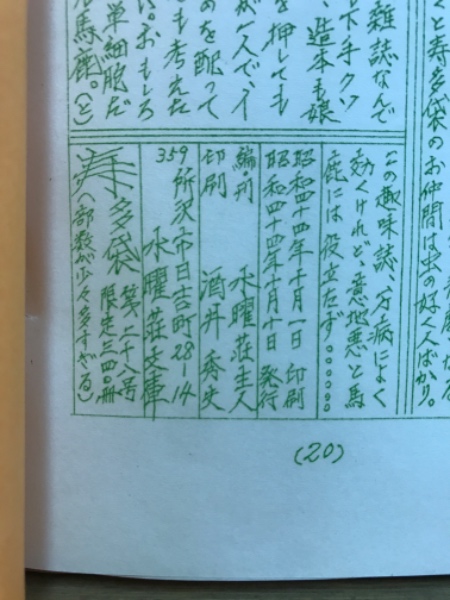 くと寿多袋のお仲間は虫の好く人ばかり。
雑誌なんで
下手クソ
造本も娘
を押しても
が一人で、イ
めを配って
も考えた
い。おもしろ
単細胞だ
馬鹿。(と)
この趣味誌、万病によく
効くけれど、意地悪と馬
鹿には役立たず。。。。。。
昭和四十四年十月一日 印刷
昭和四十四年十月十日 発行
編・刊 水曜荘主人
印刷 酒井秀夫
359 所沢市日吉町28-14
水曜荘文庫
寿多袋 第二十八号
限定三四〇冊
(部数が少々多すぎる)
(20)